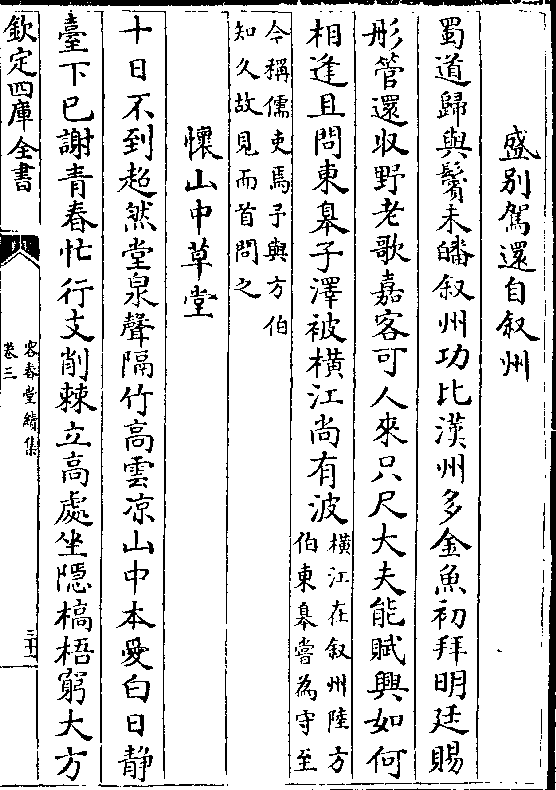 盛别駕還自叙州
蜀道歸與鬢未皤叙州功比漢州多金魚初拜明廷賜
彤管還收野老歌嘉客可人來只尺大夫能賦興如何
相逢且問東臯子澤被横江尚有波横江在叙州陸方
伯東臯嘗為守至
今稱儒吏焉予與方伯
知久故見而首問之
懷山中草堂
十日不到超然堂泉聲隔竹高雲凉山中本愛白日静
臺下已謝青春忙行支削棘立高處坐隠槁梧窮大方
欽定四庫全書
容春堂續集
卷三